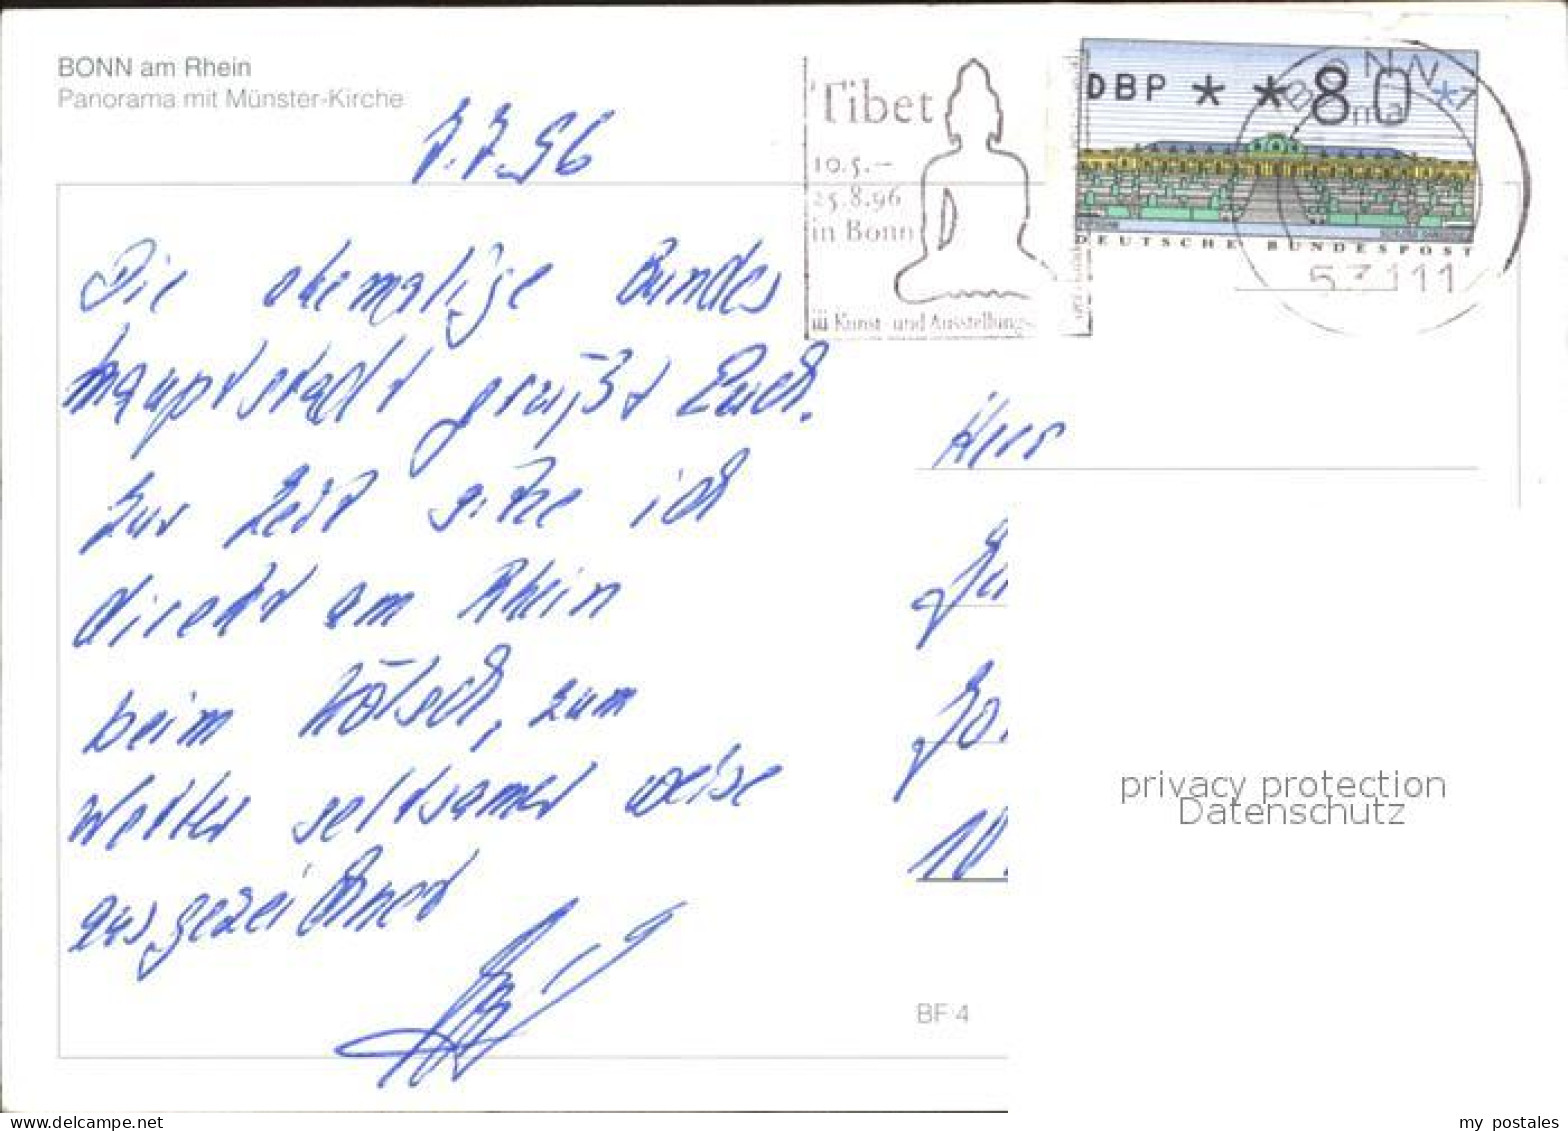 BONN am Rhein
Panorama mit Münster-Kirche
7.7.96
Die ehemalige Bundes
hauptstadt grüßt Euch.
Zur Zeit sitze ich
direkt am Rhein
beim Kölsch, zum
Wetter seltsamer weise
ausgezeichnet
Tibet
10.5.–
25.8.96
in Bonn
Kunst- und Ausstellungs-
DBP * * 80 *
DEUTSCHE BUNDESPOST
BONN 1
ma
53111
Herr
10.
privacy protection
Datenschutz
BF 4
www.delcampe.net
my postales